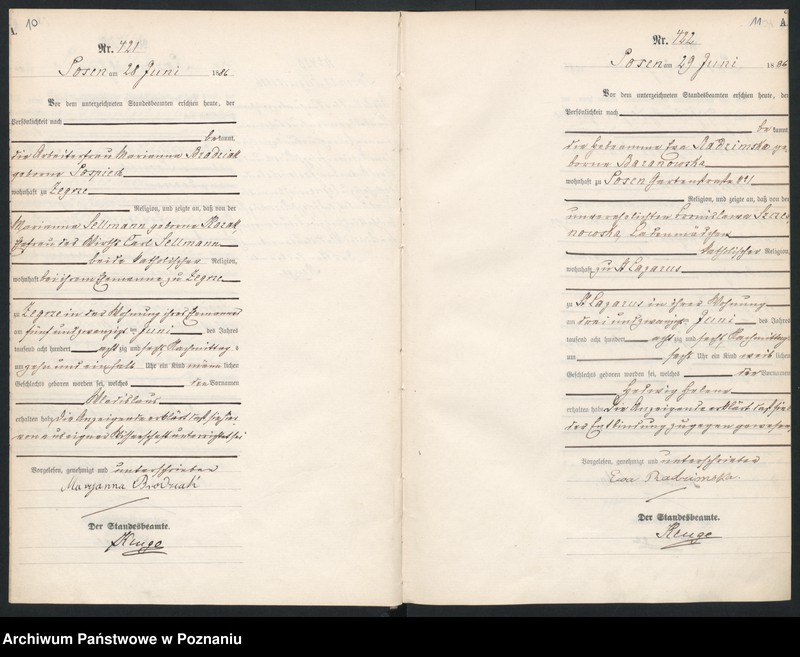 10
A.
Nr. 421
Posen am 28 Juni 1886
Vor dem unterzeichneten Standesbeamten erschien heute, der
Persönlichkeit nach
bekannt,
die Arbeiterfrau Marianna
geborne Pospiech
wohnhaft zu Zegrze
Religion, und zeigte an, daß von der
Marianna Sellmann geborne
Ehefrau des Wirths Carl Sellmann
beide katholischer Religion,
wohnhaft bei ihrem Ehemanne zu Zegrze
zu Zegrze in der Wohnung ihres Ehemannes
am fünf und zwanzigsten Juni des Jahres
tausend acht hundert achtzig und sechs, Nachmittag s
um zehn und ein halb Uhr ein Kind männlichen
Geschlechts geboren worden sei, welches den Vornamen
Wladislaus
erhalten habe. Die Anzeigende erklärt, daß sie
von aus eigener Wissenschaft unterrichtet sei
Vorgelesen, genehmigt und unterschrieben
Maryanna
Der Standesbeamte.
11
A.
Nr. 422
Posen am 29 Juni 1886
Vor dem unterzeichneten Standesbeamten erschien heute, der
Persönlichkeit nach
bekannt,
die Hebamme Eva Radzimska ge-
borne Baranowska
wohnhaft zu Posen Gartenstraße
Religion, und zeigte an, daß von der
unverehelichten Bronislawa
nowska, Ladenmädchen
katholischer Religion,
wohnhaft zu St Lazarus
zu St Lazarus in ihrer Wohnung
am drei und zwanzigsten Juni des Jahres
tausend acht hundert achtzig und sechs Nachmittags
um sechs Uhr ein Kind weiblichen
Geschlechts geboren worden sei, welches den Vornamen
Hedwig Helene
erhalten habe. Die Anzeigende erklärt, daß sie bei
der Entbindung zugegen gewesen,
Vorgelesen, genehmigt und unterschrieben
Ewa Radzimska
Der Standesbeamte.
Archiwum Państwowe w Poznaniu